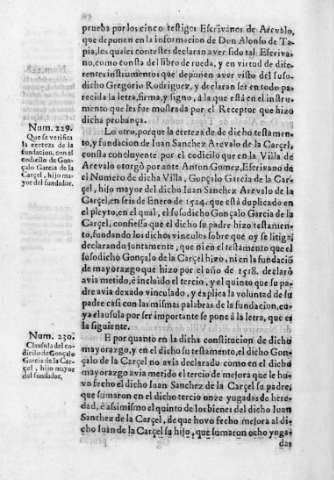 prueba por los cinco testigos Escrivanos de Arevalo,
que deponen en la informacion de Don Alonso de Ta-
pia, los quales contestes declaran aver sido tal Escriva-
no, como consta del libro de rueda, y en virtud de dife-
rentes instrumentos que deponen aver visto del suso-
dicho Gregorio Rodriguez, y declaran ser en todo pa-
recida la letra, firma, y signo, à la que està en el instru-
mento que les fue mostrada por el Receptor que hizo
dicha probança.
Num. 229.
Que se verifica
la certeza de la
fundacion, con el
codicilo de Gon-
çalo Garcia de la
Carçel, hijo ma-
yor del fundador.
Lo otro, porque la certeza de de dicho testamen-
to, y fundacion de Iuan Sanchez Arevalo de la Carçel,
consta concluyente por el codicilo que en la Villa de
Arevalo otorgò por ante Anton Gomez, Escrivano de
el Numero de dicha Villa, Gonçalo Garcia de la Car-
çel, hijo mayor del dicho Iuan Sanchez Arevalo de la
Carçel, en seis de Enero de 1524. que està duplicado en
el pleyto, en el qual, el susodicho Gonçalo Garcia de la
Carçel, confiessa que el dicho su padre hizo testamen-
to, fundando los dichos vinculos sobre que oy se litiga,
declarando juntamente, que ni en el testamento que el
susodicho Gonçalo de la Carçel hizo, ni en la fundaciõ
de mayorazgo que hizo por el año de 1518. declarò
avia metido, è incluido el tercio, y el quinto que su pa-
dre avia dexado vinculado, y explica la voluntad de su
padre casi con las mismas palabras de la fundacion, cu-
ya clausula por ser importante se pone à la letra, que es
la siguiente.
Num. 230.
Clausula del co-
dicilo de Gonçalo
Garcia de la Car-
çel, hijo mayor
del fundador.
E por quanto en la dicha constitucion de dicho
mayorazgo, y en el dicho su testamento, el dicho Gon-
çalo de la Carçel no avia declarado como en el dicho
mayorazgo avia metido el tercio de mejora que le hu-
vo fecho el dicho Iuan Sanchez de la Carçel su padre,
que sumaron en el dicho tercio onze yugadas de here-
dad, è assimismo el quinto de los bienes del dicho Iuan
Sanchez de la Carçel, de que hovo fecho mejora al di-
cho Iuan de la Carçel su hijo, que sumaron ocho yuga-
das